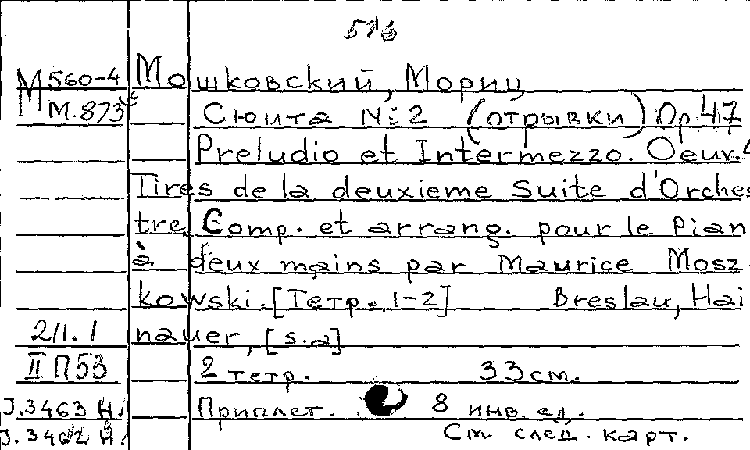 516
М560-4 Мошковский, Мориц
М.873 Сюита №2 (отрывки) Op.47
Preludio et Intermezzo. Oeuv.
Tires de la deuxieme Suite d'Orches
tre. Comp. et arrang. pour le Pian
à deux mains par Maurice Mosz
kowski. [Тетр. 1-2] Breslau, Hai
2/1.1 nauer, [s.a]
II П53 2 тетр. 33см.
J.3463 Н. Приплет. 8 инв. ед.
J.3462 Н. См. след. карт.